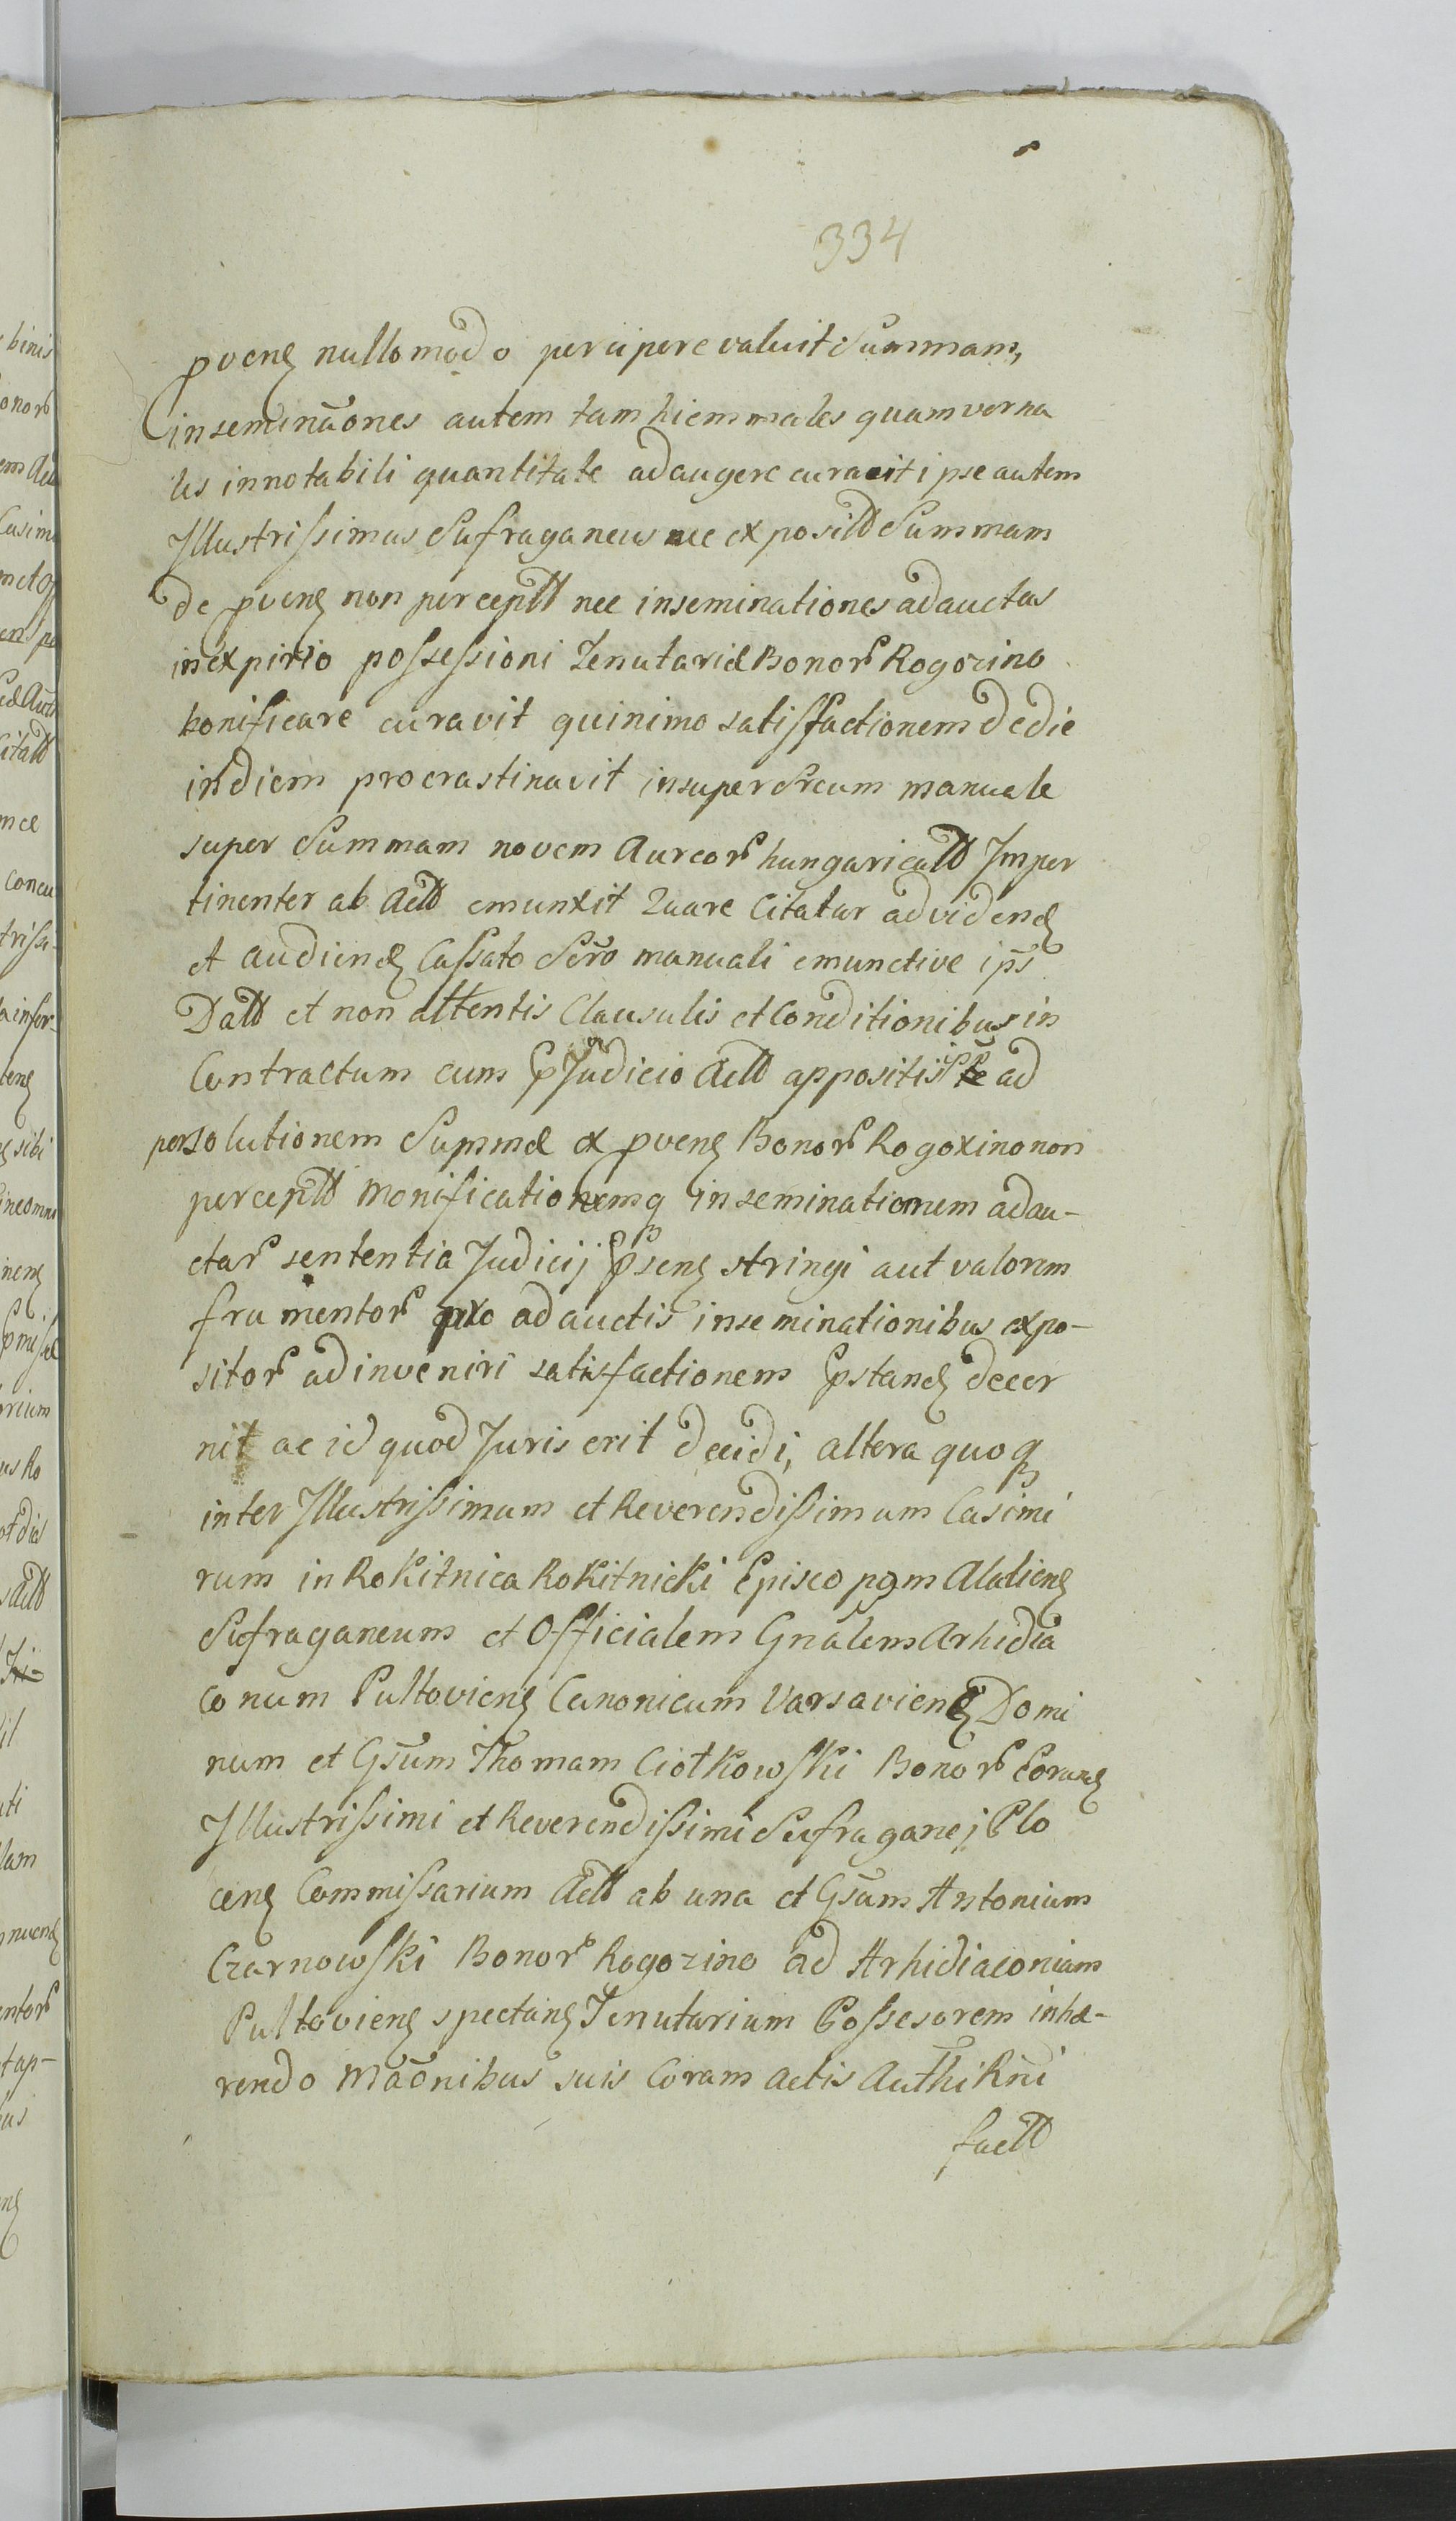 334
pvenꝫ nullo modo percipere valuit Summam,
inseminãones autem tam hiemmales quam verna
les in notabili quantitate adaugere curavit ipse autem
Jllustrissimus Sufraganeus nec exposittt Summam
de pvenꝫ non percepttt nec inseminationes adauctas
in expirio possessioni Tenutariæ Bonorꝝ Rogozino
bonificare curavit quinimo satisfactionem de die
in diem procrastinavit insuper Scrum manuale
super Summam novem Aureorꝝ hungaricaltt Imper
tinenter ab Acttt emunxit Quare Citatur ad videndꝫ
et audiendꝫ Cassato Scro manuali emunctive ips̃
Dattt et non attentis Clausulis et Conditionibus in
Contractum cum ꝑJudicio Acttt appositis ad
persolutionem Summæ ex pvenꝫ Bonorꝝ Rogozino non
percepttt monificationemq inseminationem adau-
ctarꝝ sententia Judicij ꝑsenꝫ stringi aut valorem
frumentorꝝ pro adauctis inseminationibus expo-
sitorꝝ adinveniri satisfactionem ꝑstandꝫ decer
nit ac id quod Juris erit decidi, altera quoqꝫ
inter Jllustrissimum et Reverendissimum Casimi
rum in Rokitnica Rokitnicki Episcopum Aladienꝫ
Sufraganeum et Officialem Gnãlem Arhidia
conum Pultovienꝫ Canonicum Varsavienꝫ Domi
num et Gsũm Thomam Ciotkowski Bonorꝝ Eorundꝫ
Jllustrissimi et Reverendissimi Sufraganej Plo
cenꝫ Commissarium Acttt ab una et Gsũm Antonium
Czarnowski Bonorꝝ Rogozino ad Arhidiaconiam
Pultovienꝫ spectanꝫ Tenutarium Possesorem inhæ-
rendo Mãonibus suis Coram Actis Authi Rñi
facttt